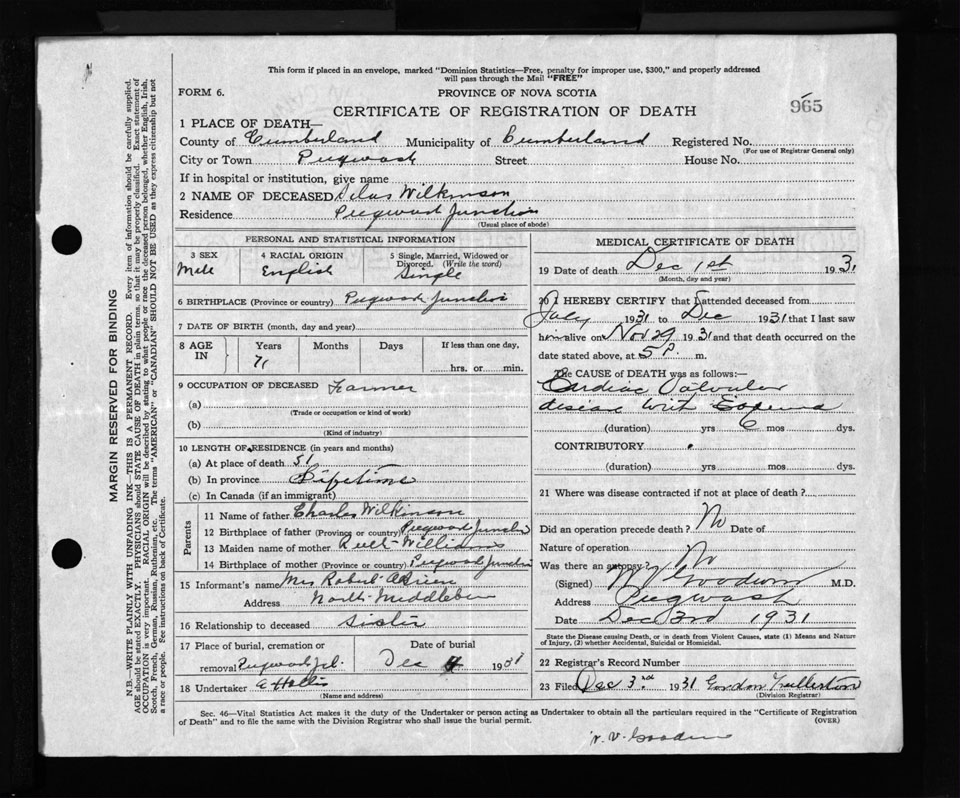 This form if placed in an envelope, marked "Dominion Statistics—Free, penalty for improper use, $300," and properly addressed
will pass through the Mail "FREE"
FORM 6.
PROVINCE OF NOVA SCOTIA
CERTIFICATE OF REGISTRATION OF DEATH
965
1 PLACE OF DEATH—
County of Cumberland Municipality of Cumberland Registered No.
(For use of Registrar General only)
City or Town Pugwash Street House No.
If in hospital or institution, give name
2 NAME OF DECEASED Silas Wilkinson
Residence Pugwash Junction
(Usual place of abode)
PERSONAL AND STATISTICAL INFORMATION
3 SEX 4 RACIAL ORIGIN 5 Single, Married, Widowed or
Divorced. (Write the word)
Male English Single
6 BIRTHPLACE (Province or country) Pugwash Junction
7 DATE OF BIRTH (month, day and year)
8 AGE IN Years Months Days If less than one day,
71 hrs. or min.
9 OCCUPATION OF DECEASED Farmer
(a)
(Trade or occupation or kind of work)
(b)
(Kind of industry)
10 LENGTH OF RESIDENCE (in years and months)
(a) At place of death 51
(b) In province Lifetime
(c) In Canada (if an immigrant)
Parents
11 Name of father Charles Wilkinson
12 Birthplace of father (Province or country) Pugwash Junction
13 Maiden name of mother Ruth Williams
14 Birthplace of mother (Province or country) Pugwash Junction
15 Informant's name Mrs Robert O'Brien
Address North Middleboro
16 Relationship to deceased Sister
17 Place of burial, cremation or Date of burial
removal Pugwash Jct. Dec 4 1931
18 Undertaker
(Name and address)
MEDICAL CERTIFICATE OF DEATH
19 Date of death Dec 1st 1931
(Month, day and year)
20 I HEREBY CERTIFY that I attended deceased from
July 1931 to Dec 1931 that I last saw
him alive on Nov 29 1931 and that death occurred on the
date stated above, at 5 P. m.
The CAUSE OF DEATH was as follows:—
Cardiac Valvular
disease with
(duration) yrs 6 mos dys.
CONTRIBUTORY
(duration) yrs mos dys.
21 Where was disease contracted if not at place of death?
Did an operation precede death? No Date of
Nature of operation
Was there an autopsy? No
(Signed) Goodwin M.D.
Address Pugwash
Date Dec 3rd 1931
State the Disease causing Death, or in death from Violent Causes, state (1) Means and Nature
of Injury, (2) whether Accidental, Suicidal or Homicidal.
22 Registrar's Record Number
23 Filed Dec 3rd 1931 Gordon Fullerton
(Division Registrar)
Sec. 46—Vital Statistics Act makes it the duty of the Undertaker or person acting as Undertaker to obtain all the particulars required in the "Certificate of Registration
of Death" and to file the same with the Division Registrar who shall issue the burial permit.
(OVER)
MARGIN RESERVED FOR BINDING
N.B.—WRITE PLAINLY WITH UNFADING INK—THIS IS A PERMANENT RECORD. Every item of information should be carefully supplied.
AGE should be stated EXACTLY. PHYSICIANS should STATE CAUSE OF DEATH in plain terms so that it may be properly classified. Exact statement of
OCCUPATION is very important. RACIAL ORIGIN will be described by stating to what people or race the deceased person belonged, whether English, Irish,
Scotch, French, German, Russian, Ruthenian, etc. The terms "AMERICAN" or "CANADIAN" SHOULD NOT BE USED as they express citizenship but not
a race or people. See instructions on back of Certificate.